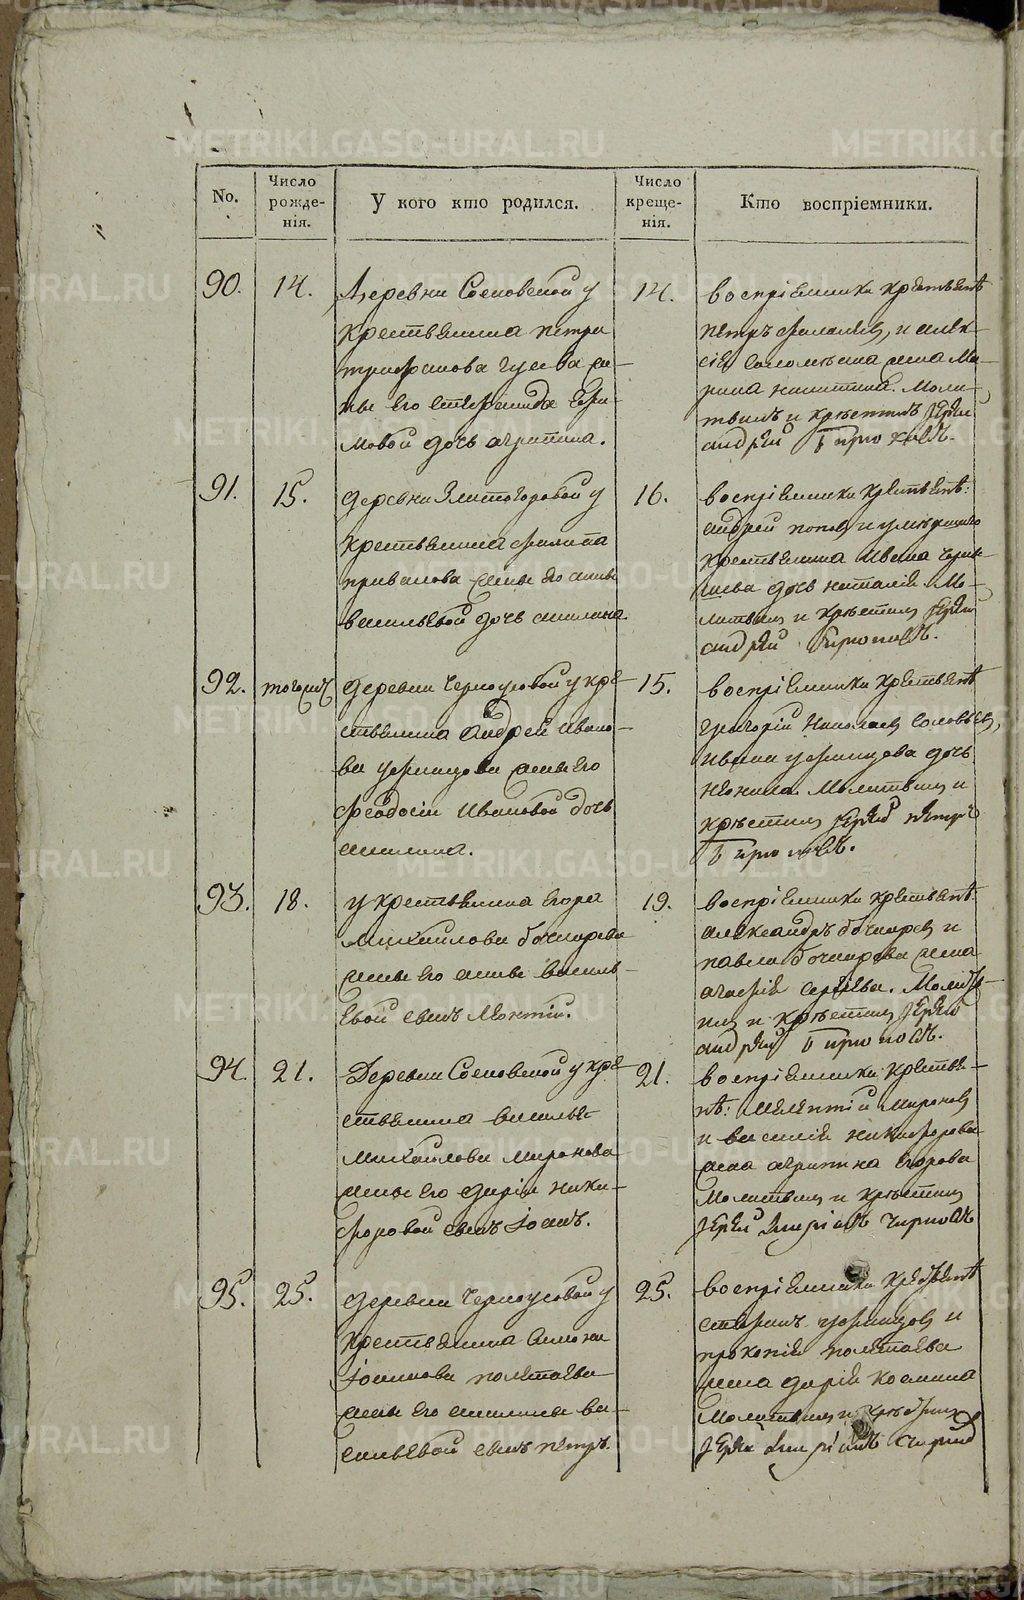 METRIKI.GASO-URAL.RU
No.
Число рожде- нія.
У кого кто родился.
Число креще- нія.
Кто воспріемники.
90.
14.
Деревни Сосновской у
крестьянина петра
трифанова гусева же-
ны его
дочь агрипина.
14.
воспріемники крестьянѣ
петръ и алек-
сія жена Ма-
рина никитина. Моли-
твилъ и крѣстилъ Іерей
андрей
91.
15.
деревни Златогоровой у
крестьянина филипа
привалова жены его анны
васильевой дочь
16.
воспріемники крестьянѣ:
андрей попов и умершаго
крестьянина Ивана
дочь наталія Мо-
литвил и крѣстил Іерей
андрей
92.
тогожъ
деревни Черноусовой у кре-
стьянина Андрея Ивано-
ва уфинцова жены его
феодосіи Ивановой дочь
15.
воспріемники крестьянѣ
григорій Николаев Соловьев,
Ивана уфинцова дочь
неонила. Молитвил и
крѣстил Іерей петръ
93.
18.
у крестьянина егора
Михайлова бочкарева
жены его анны василь-
евой сынъ Леонтій.
19.
воспріемники крестьянѣ
александръ бочкарев и
павла бочкарева жена
агафія сергѣева. Молитв-
ил и крѣстил Іерей
андрей
94.
21.
Деревни Сосновской у кре-
стьянина василья
Михайлова миронова
жены его даріи ники-
форовой сынъ Іоанъ.
21.
воспріемники крестья-
нѣ: Мелентій Миронов
и василія никифорова
жена агрипина егорова
Молитвил и крѣстил
Іерей
95.
25.
деревни Черноусовой у
крестьянина Симона
Іоаннова полетаева
жены его ва-
сильевой сынъ петръ.
25.
воспріемники крестьянѣ
стефанъ уфинцов и
прокопія полетаева
жена дарія козмина
Молитвил и крѣстил
Іерей